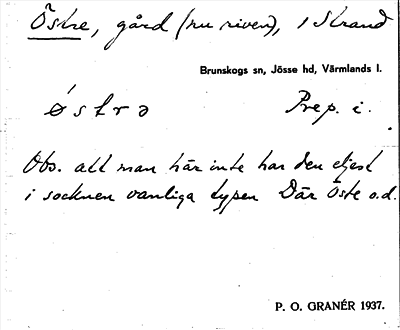 Östre, gård (nu riven), i Strand
Brunskogs sn, Jösse hd, Värmlands l.
ǿ s t r ə Prep. i.
Obs. att man här inte har den eljest
i socknen vanliga typen Där Öste o.d.
P. O. GRANÉR 1937.